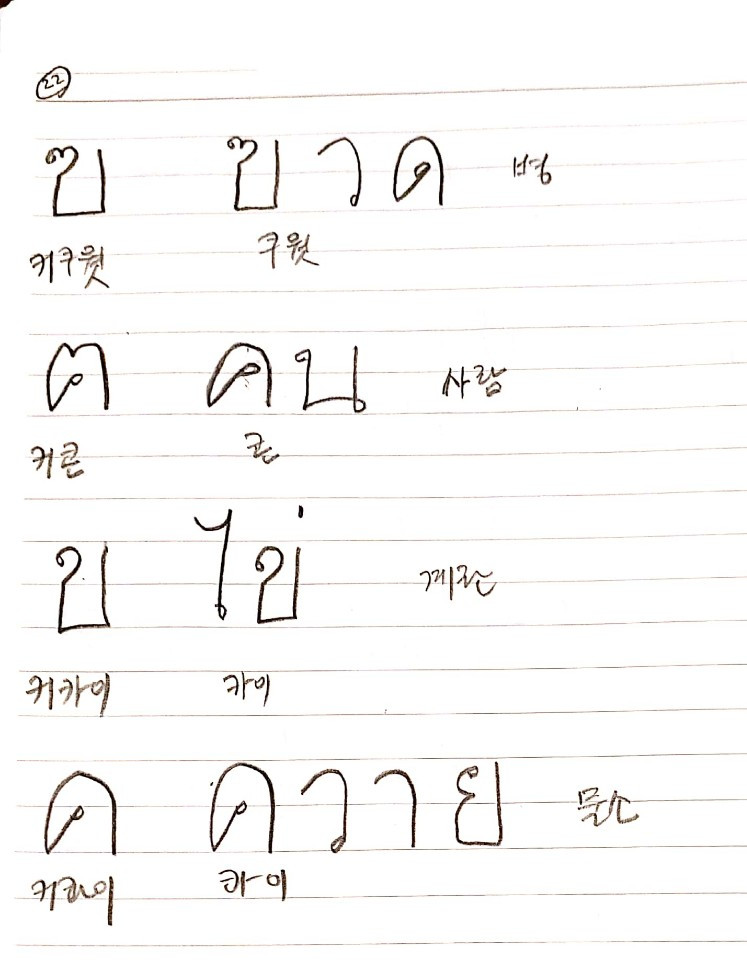 22
ฃ ฃวด 병
커쿠웟 쿠웟
ฅ คน 사람
커콘 콘
ข ไข่ 계란
커카이 카이
ค ควาย 물소
콰이